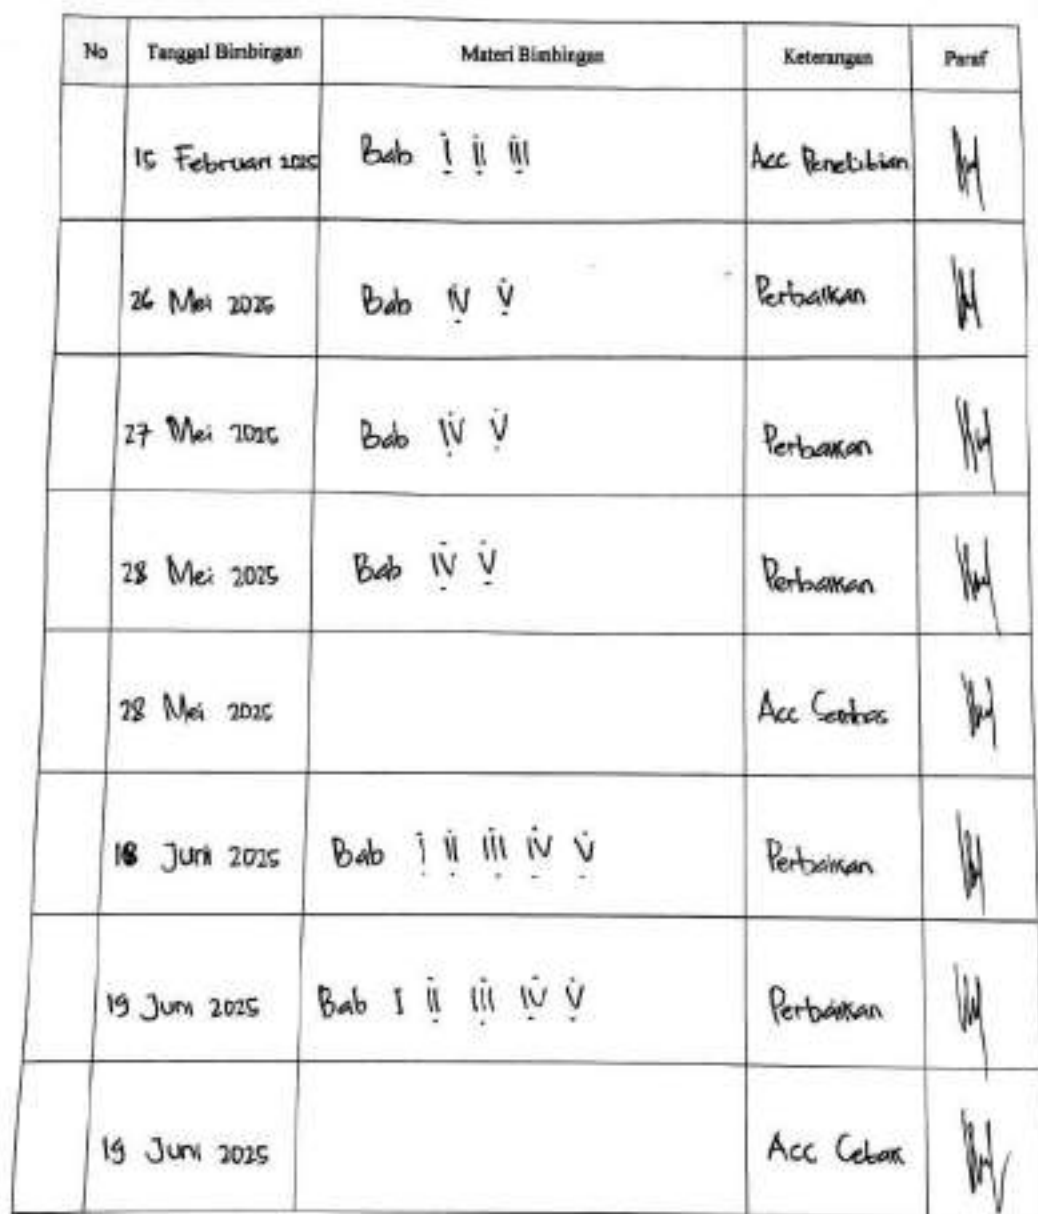 No Tanggal Bimbingan Materi Bimbingan Keterangan Paraf
15 Februari 2025 Bab I II III Acc Penelitian
26 Mei 2025 Bab IV V Perbaikan
27 Mei 2025 Bab IV V Perbaikan
28 Mei 2025 Bab IV V Perbaikan
28 Mei 2025 Acc Semhas
18 Juni 2025 Bab I II III IV V Perbaikan
19 Juni 2025 Bab I II III IV V Perbaikan
19 Juni 2025 Acc Cetak